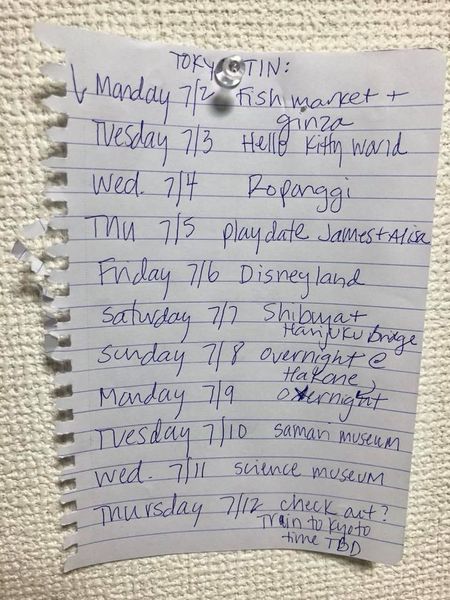 TOKY TIN:
Monday 7/2 Fish market +
ginza
Tuesday 7/3 Hello Kitty World
Wed. 7/4 Roponggi
Thu 7/5 playdate James + Alisa
Friday 7/6 Disneyland
Saturday 7/7 Shibuya +
Harijuku bridge
Sunday 7/8 overnight @
Hakone,
Monday 7/9 overnight
Tuesday 7/10 samari museum
Wed. 7/11 science museum
Thursday 7/12 check out?
Train to Kyoto
time TBD